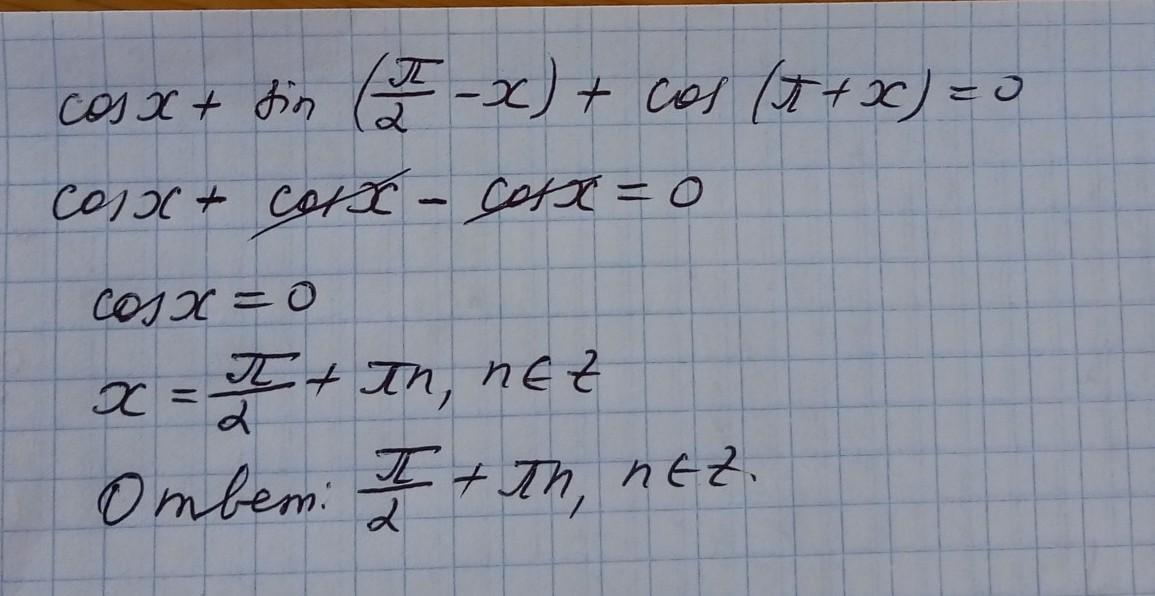 cos x + sin (π/2 - x) + cos (π + x) = 0
cos x + cos x - cos x = 0
cos x = 0
x = π/2 + πn, n ∈ z
Ответ: π/2 + πn, n ∈ z.